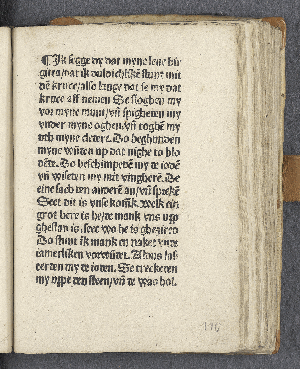 ¶Ik segge dy dat myne leue bir
gitta/dat ik duldichlikē stunt mit
dē kruce/also lange dat se my dat
kruce aff nemen Se sloghen my
vor myne munt/vñ spigheten my
vnder myne oghen/vñ toghē my
vth myne cledere. Do beghunden
myne wūden up dat nighe to blo
dēde. Do beschimpedē my de iodē
vñ wiseden my mit vingherē. De
eine sach den anderē an/vñ sprekē
Seet dit is vnse konīk. welk ein
grot here is he/de mank vns upp
ghestan is/seet wo he is ghezireto
Do stunt ik mank en naket vnde
iamerliken vorwūdet. Also las
erden my de ioden. Se treckeden
my uppe den steen/vñ de was hol.